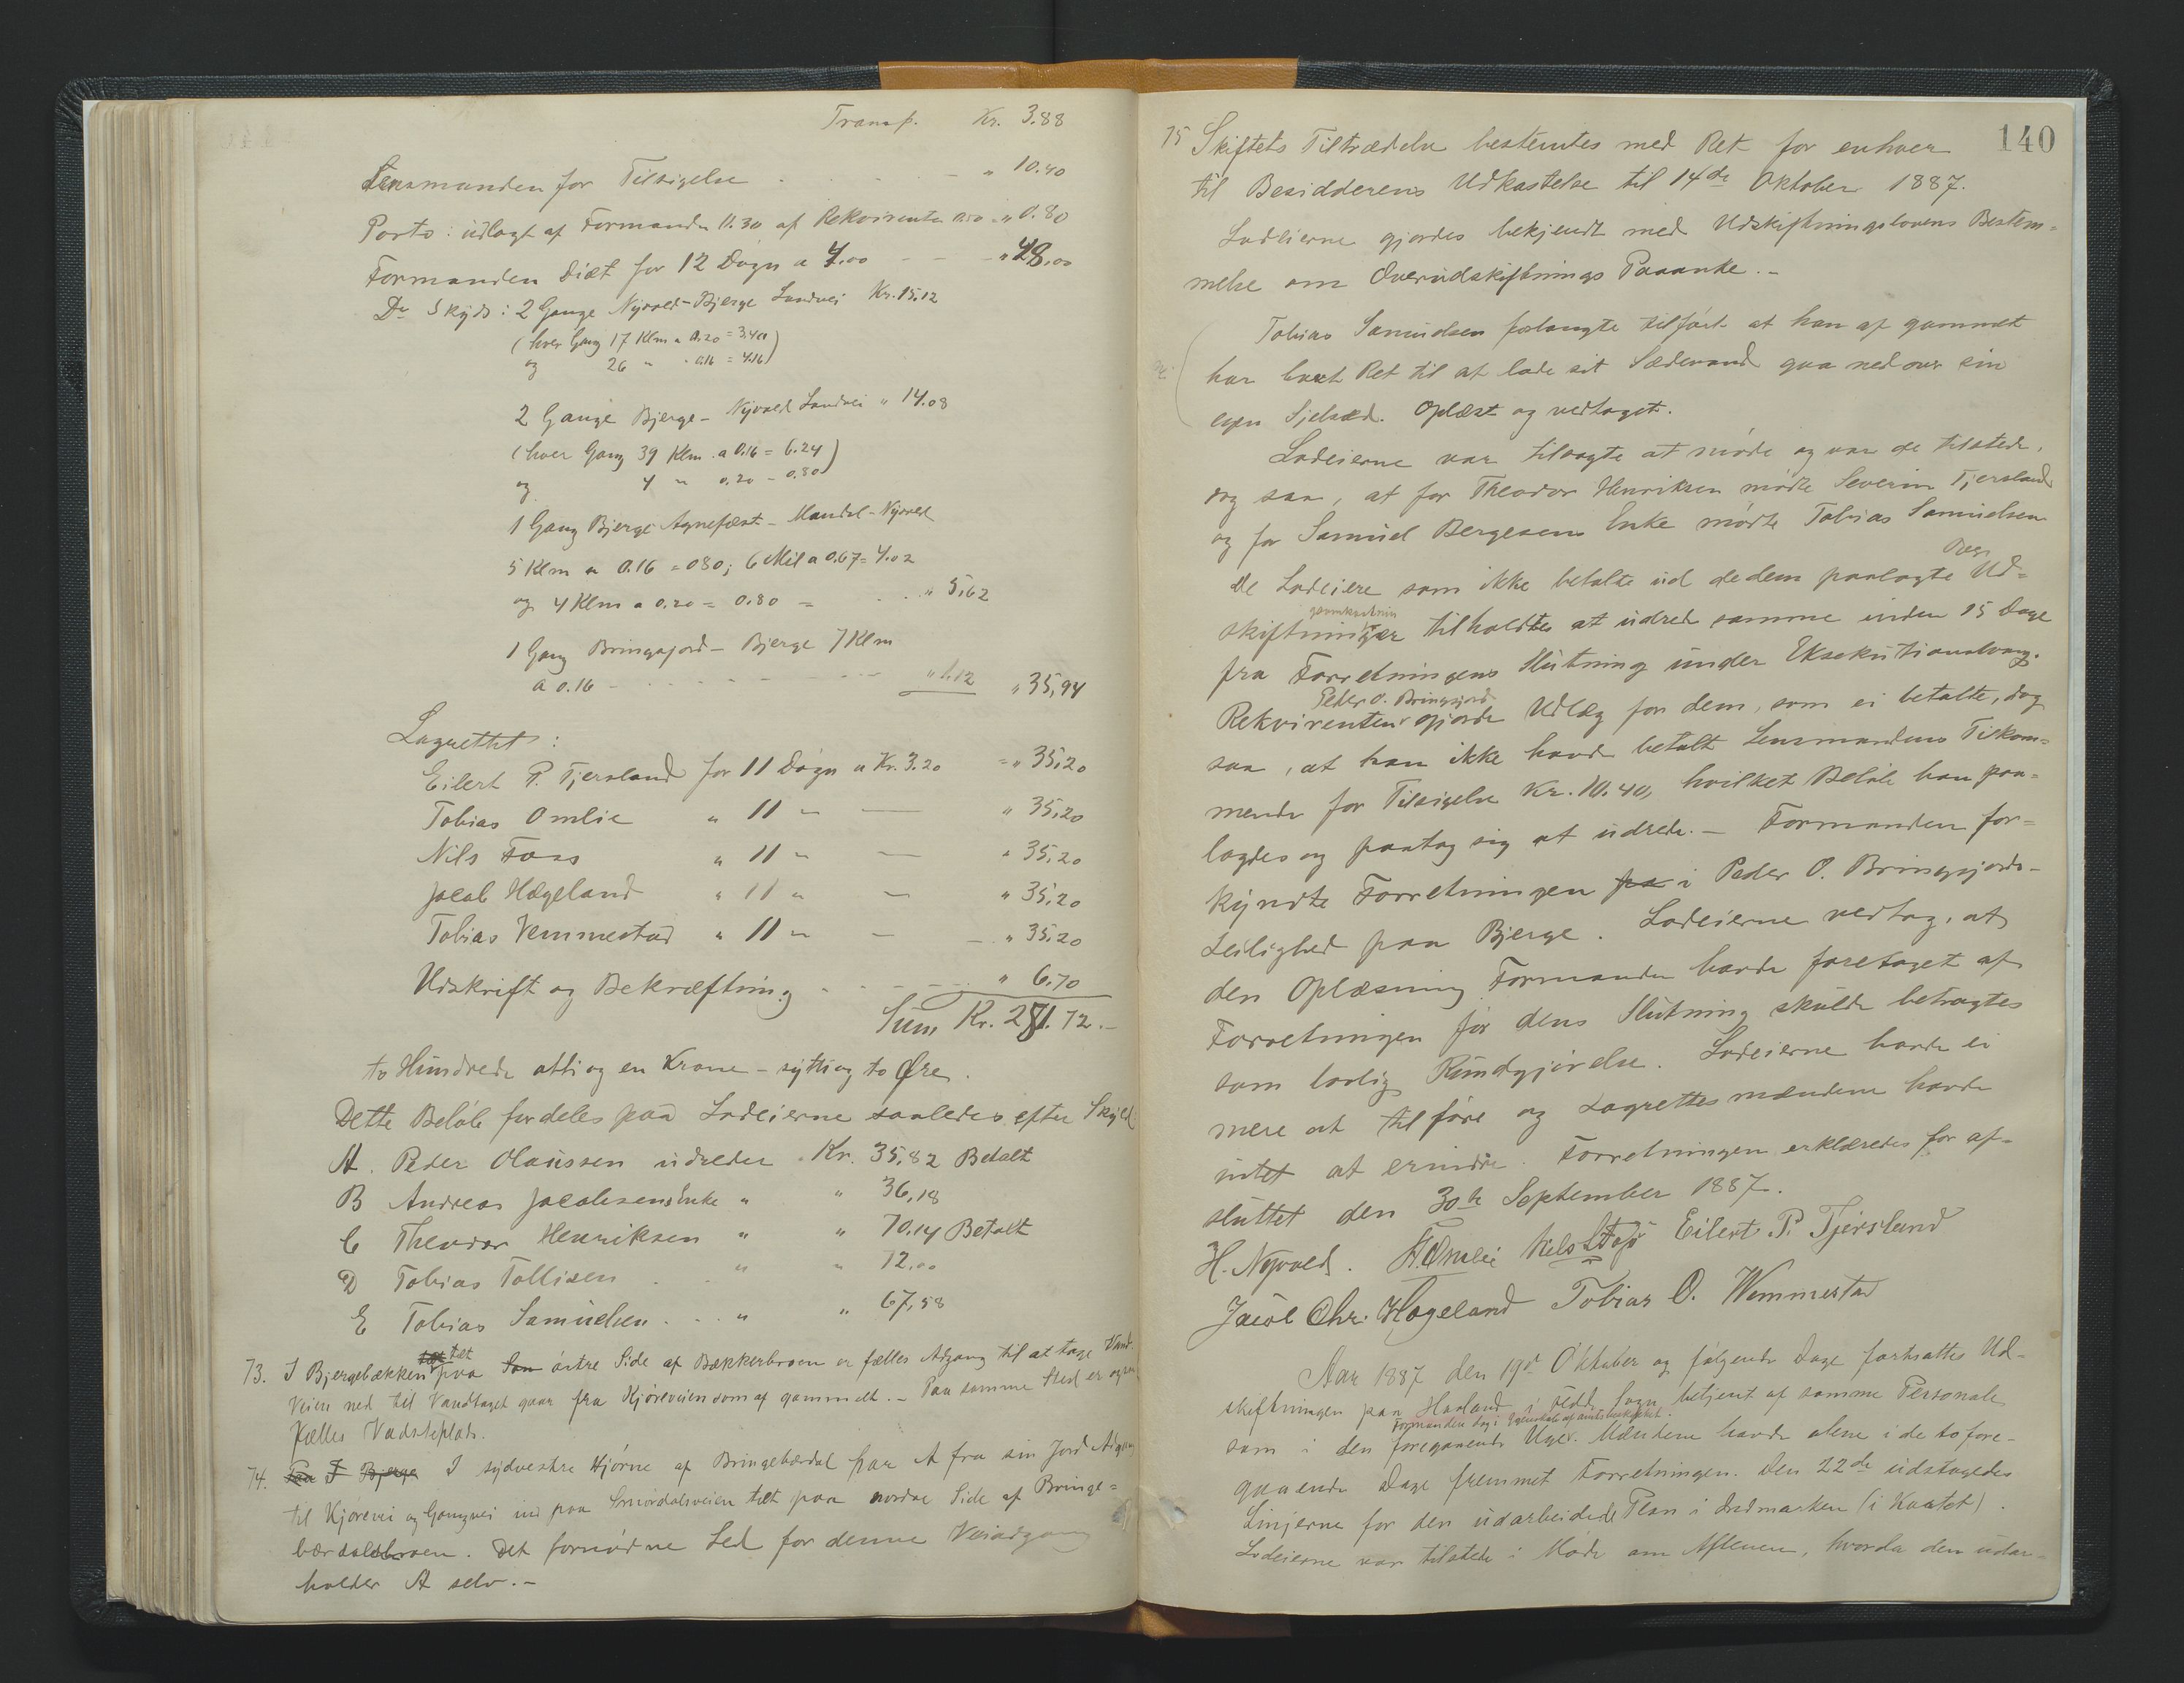 Transp. Kr. 3.88
Lensmanden for Tilsigelse - - - " 10.40
Porto: udlagt af Formanden 0.30 af Rekvirenten 0.50 = " 0.80
Formanden Diæt for 12 Døgn a 4.00 - - - " 48.00
Do Skyds: 2 Gange Nyvold-Bjerge Landvei Kr. 15.12
(hver Gang 17 Klm a 0.20 = 3.40
og 26 " " 0.16 = 4.16)
2 Gange Bjerge - Nyvold Landvei " 14.08
(hver Gang 39 Klm. a 0.16 = 6.24
og 4 " 0.20 - 0.80)
1 Gang Bjerge Agnefest - Mandal - Nyvold
5 Klm a 0.16 = 080; 6 Mil a 0.67 = 4.02
og 4 Klm a 0.20 = 0.80 = . . " 5,62
1 Gang Bringsjord - Bjerge 7 Klm
a 0.16 - - - - - " 1.12 " 35,94
Lagrettet:
Eilert P. Tjersland for 11 Døgn a Kr. 3.20 = " 35,20
Tobias Omlie " 11 " — " 35,20
Nils Foss " 11 " — " 35,20
Jacob Hægeland " 11 " — " 35,20
Tobias Vemmestad " 11 " — " 35,20
Udskrift og Bekræftning - - - " 6.70
Sum Kr. 281.72.-
to Hundrede otti og en Krone - sytti og to Øre.
Dette Beløb fordeles paa Lodeierne saaledes efter Skyld
A. Peder Olaussen udreder Kr. 35,82 Betalt
B Andreas Jacobsens Enke " " 36,18
C Theodor Henriksen " " 70.14 Betalt
D Tobias Tollisen . . " " 72.00
E Tobias Samuelsen . . . " " 67,58
73. I Bjergebækken tæt paa østre Side af Bækkerbroen er fælles Adgang til at tage Vand.
Veien ned til Vandtaget gaar fra Kjøreveien som af gammelt. - Paa samme Sted er ogsaa
Fælles Vadskeplads.
74. Paa I Bjerge I sydvestre Hjørne af Bringebærdal har A fra sin Jord Adgang
til Kjørevei og Gangvei ind paa Smørdalsveien tæt paa nordre Side af Bringe=
bærdalsbroen. Det fornødne Led for denne Veiadgang
holder A selv. -
140
75 Skiftets Tiltrædelse bestemtes med Ret for enhver
til Besidderens Udkastelse til 14de Oktober 1887.
Lodeierne gjordes bekjendt med Udskiftningslovens Bestem=
melse om Overudskiftnings Paaanke. -
Tobias Samuelsen forlangte tilført at han af gammelt
har havt Ret til at lade sit Sædevand gaa ned over sin
egen Sjelsæd. Oplæst og vedtaget.
Lodeierne var tilsagte at møde og var de tilstede,
dog saa, at for Theodor Henriksen mødte Severin Tjersland
og for Samuel Bergesens Enke mødte Tobias Samuelsen
de Lodeiere som ikke betalte ud de dem paalagte Ud=
skiftninger tilholdtes at udrede samme inden 15 Dage
fra Forretningens Slutning under Eksekutionstvang.
Peder O. Bringsjord
Rekvirenten gjorde Udlæg for dem, som ei betalte, dog
saa, at han ikke havde betalt Lensmandens Tilkom=
mende for Tilsigelse Kr. 10.40, hvilket Beløb han paa=
lagdes og paatog sig at udrede. - Formanden for=
kyndte Forretningen paa i Peder O. Bringsjords
Leilighed paa Bjerge. Lodeierne vedtog, at
den Oplæsning Formanden havde foretaget af
Forretningen før dens Slutning skulde betragtes
som lovlig Kundgjørelse. Lodeierne havde ei
mere at tilføre og Lagrettesmændene havde
intet at erindre. Forretningen erklæredes for af=
sluttet den 30te September 1887.
H. Nyvold. T. Omlie Nils Foss Eilert P. Tjersland
Jacob Chr. Hægeland Tobias O. Wemmestad
Aar 1887 den 19de Oktober og følgende Dage fortsattes Ud-
skiftningen paa Haaland i Sogn betjent af samme Personale
Formanden dog i Egenskab af
som i den foregaaende Uge. Mændene havde alene i de to fore-
gaaende Dage fremmet Forretningen. Den 22de udstagedes
Linjerne for den udarbeidede Plan i Indmarken (i Kaatet).
Lodeierne var tilstede i Møde om Aftenen, hvorda den udar=